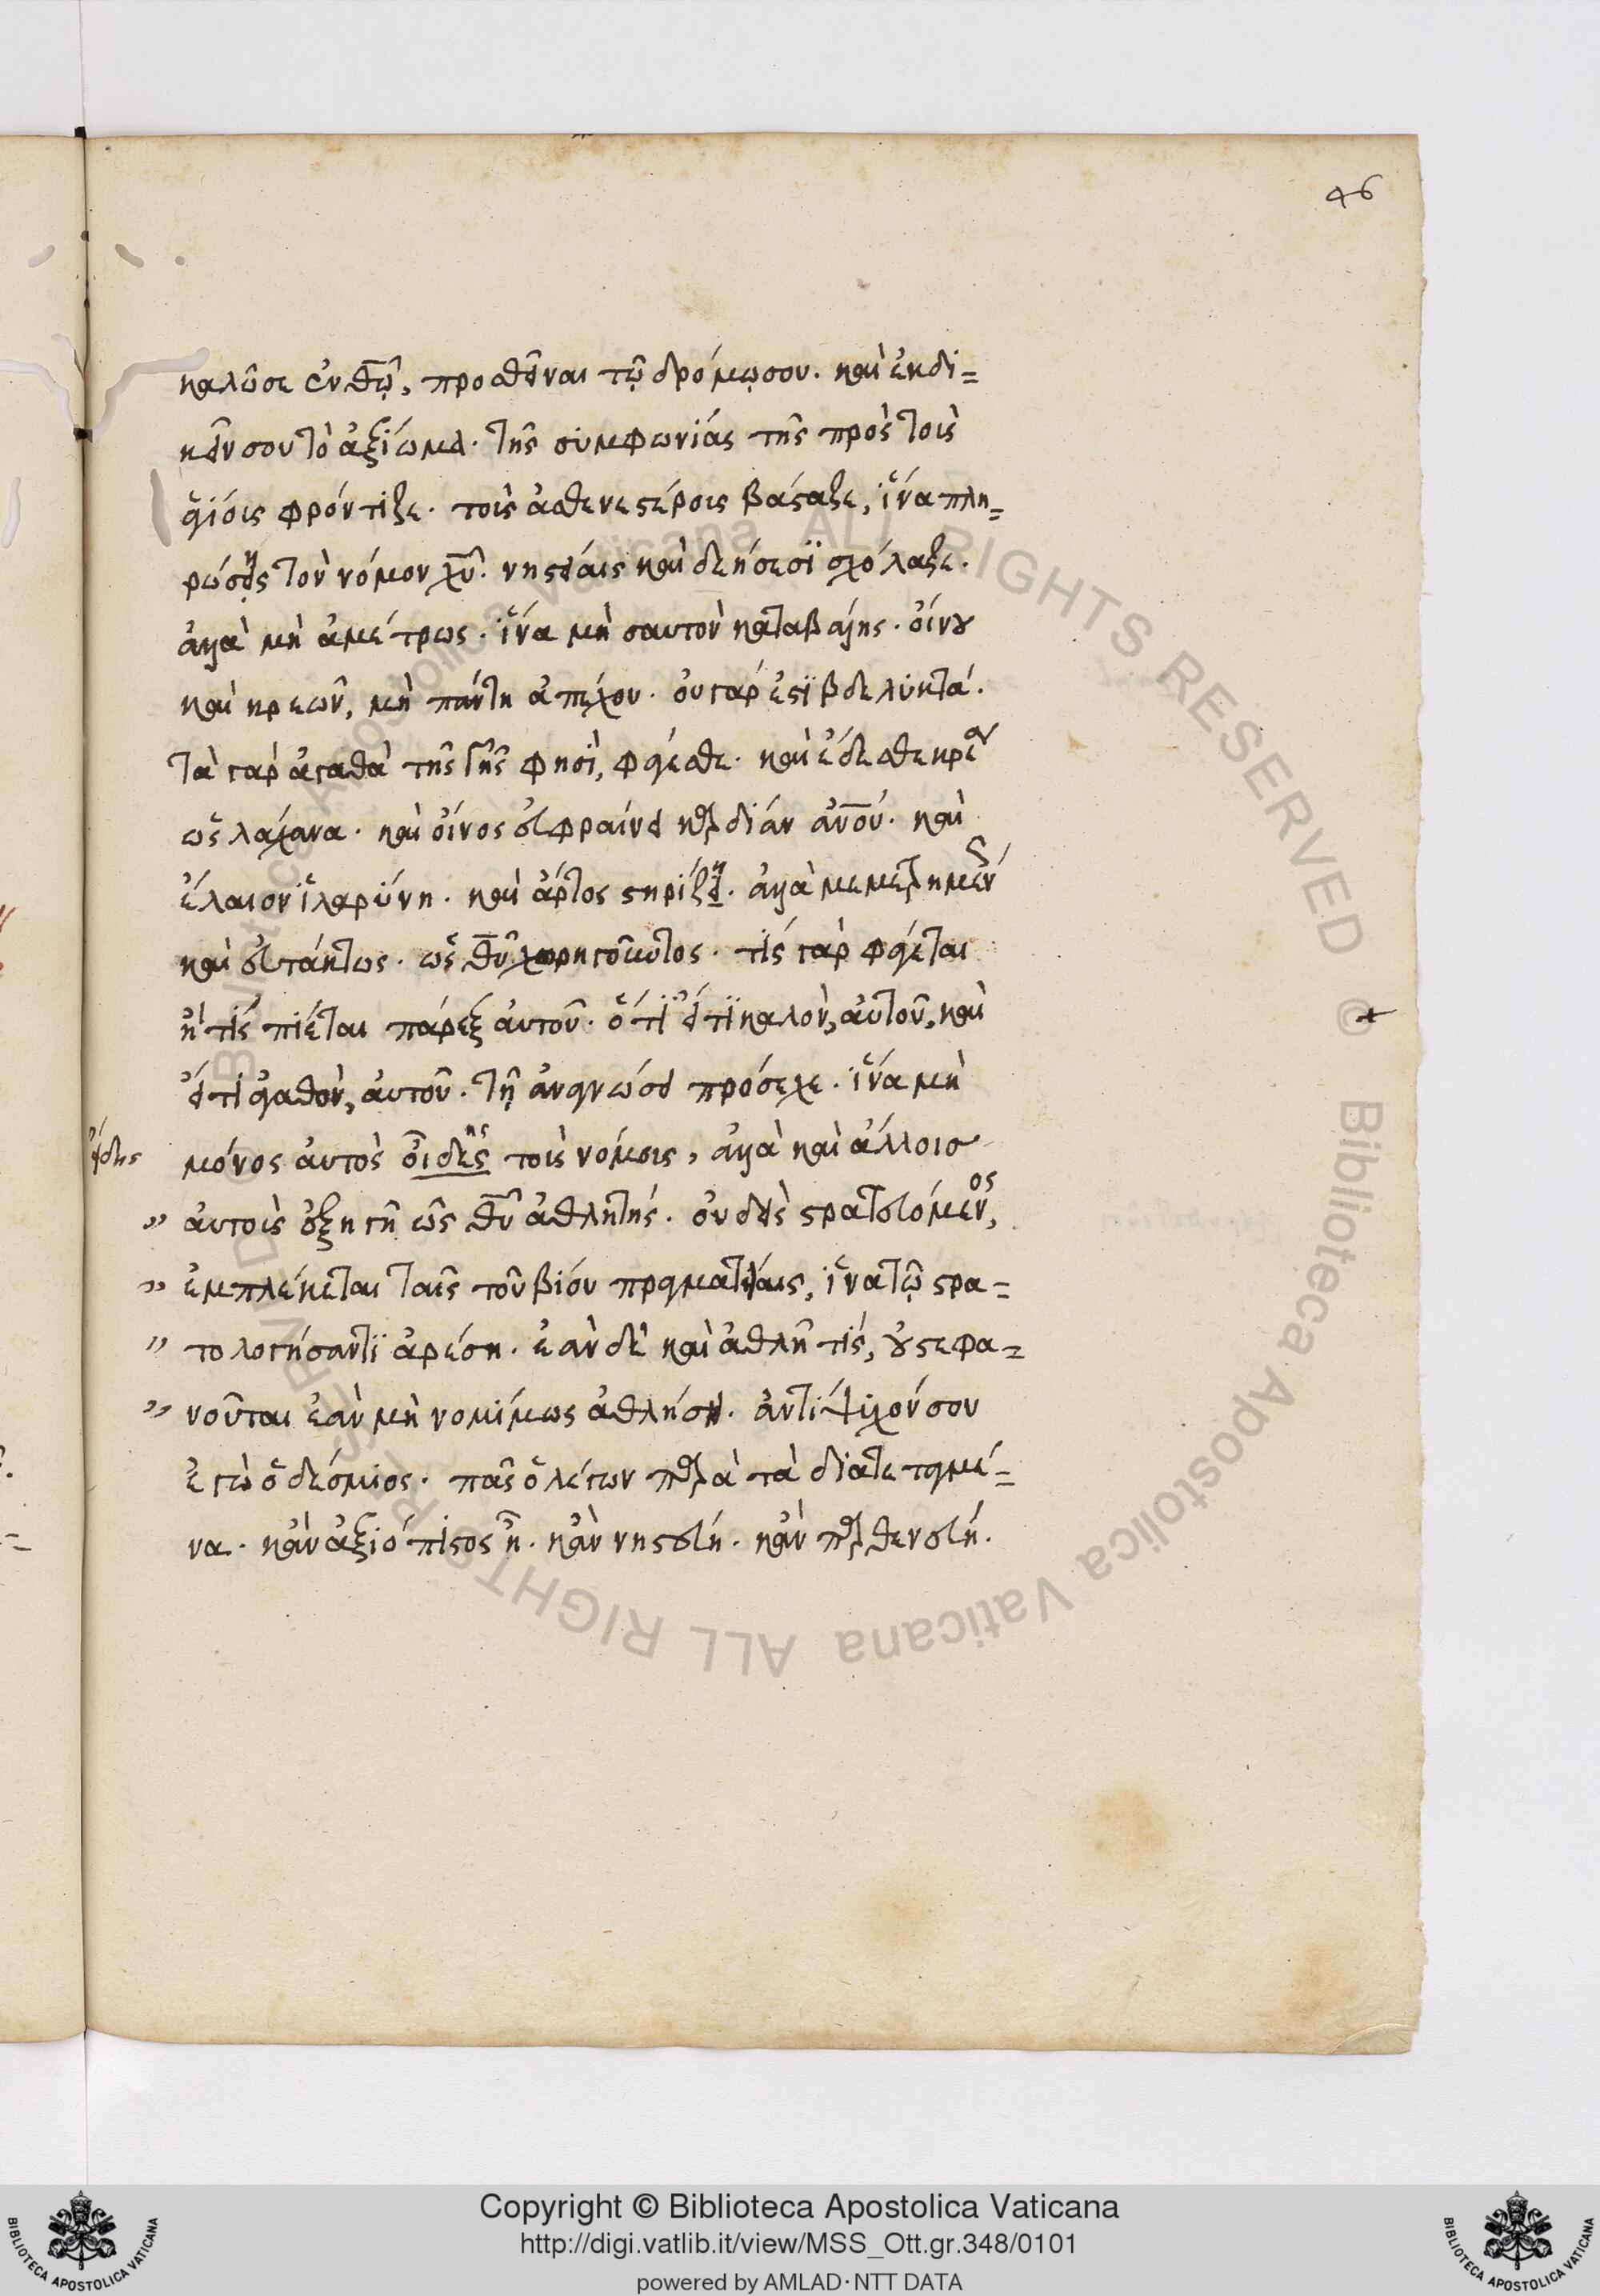 46
καλῶ σε ἐν θ͞ῳ, προσθεῖναι τῷ δρόμῳ σου. καὶ ἐκδι=
κεῖν σου τὸ ἀξίωμα. τῆς συμφωνίας τῆς πρὸς τοὺς
ἁγίοις φρόντιζε. τοὺς ἀσθενεστέροις βάσταζε, ἵνα πλη=
ρώσῃς τὸν νόμον χ͞υ. νηστείαις καὶ δεήσεσϊ σχόλαζε.
ἀλλὰ μὴ ἀμέτρως. ἵνα μὴ σαυτὸν καταβάλης. οἴνου
καὶ κρεῶν, μὴ πάντη ἀπέχου. οὐ γάρ ἐστϊ βδελυκτά.
τὰ γὰρ ἀγαθὰ τῆς γῆς φησὶ, φάγεσθε. καὶ ἔδεσθε κρέα
ὡς λάχανα. καὶ οἶνος εὐφραίνει καρδίαν ἀν͞ου. καὶ
ἔλαιον ἱλαρύνη. καὶ ἄρτος στηρίζει. ἀλλὰ μεμετρημένως
καὶ εὐτάκτως. ὡς θ͞υ χορηγοῦντος. τίς γὰρ φάγεται
ἢ τίς πίεται πάρεξ αὐτοῦ. ὅτϊ εἴ τϊ καλὸν, αὐτοῦ, καὶ
εἴ τι ἀγαθὸν, αὐτοῦ. τῇ ἀναγνώσει πρόσεχε. ἵνα μὴ
ᾔδης
μόνος αὐτὸς οἶδες τοὺς νόμους, ἀλλὰ καὶ ἄλλοισ
αὐτοὺς ἐξηγῇ ὡς θ͞υ ἀθλητής. οὐδεὶς στρατευόμενος,
ἐμπλέκεται ταῖς τοῦ βίου πραγματείαις, ἵνα τῷ στρα=
τολογήσαντϊ ἀρέσῃ. ἐὰν δὲ καὶ ἀθλῇ τίς, οὐ στεφα=
νοῦται ἐὰν μὴ νομίμως ἀθλήσῃ. ἀντίψυχόν σου
ἐγὼ ὁ δέσμιος. πᾶς ὁ λέγων παρὰ τὰ διατεταγμέ=
να. κἂν ἀξιόπιστος ᾖ. κἂν νηστεύῃ. κἂν παρθενεύῃ.
Copyright © Biblioteca Apostolica Vaticana
http://digi.vatlib.it/view/MSS_Ott.gr.348/0101
powered by AMLAD·NTT DATA